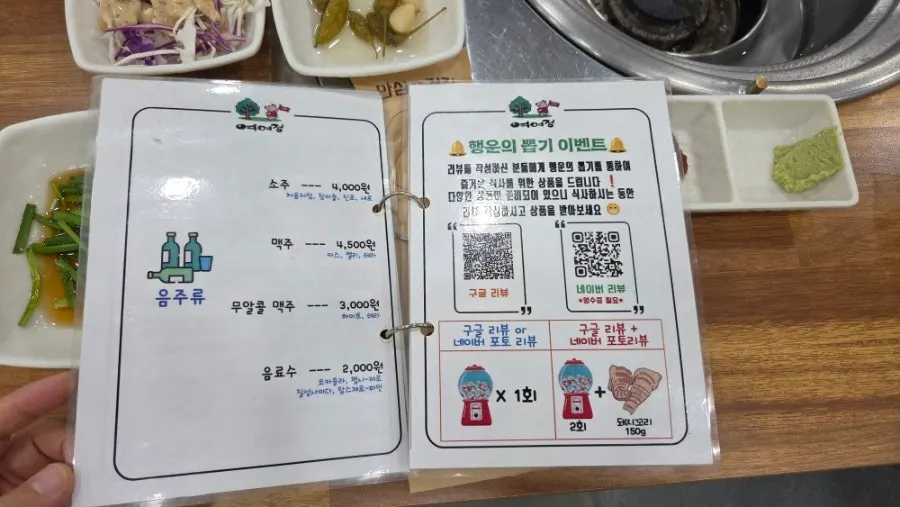 여여정
소주 --- 4,000원
처음처럼, 참이슬, 진로, 새로
맥주 --- 4,500원
카스, 켈리, 테라
음주류
무알콜 맥주 --- 3,000원
하이트, 테라
음료수 --- 2,000원
코카콜라, 펩시-제로
칠성사이다, 탐스제로-파인
여여정
행운의 뽑기 이벤트
리뷰를 작성하신 분들에게 행운의 뽑기를 통하여
즐거운 식사를 위한 상품을 드립니다 ❗
다양한 상품이 준비되어 있으니 식사하시는 동안
리뷰 작성하시고 상품을 받아보세요 😁
구글 리뷰
네이버 리뷰
*영수증 필요*
구글 리뷰 or
네이버 포토 리뷰
구글 리뷰 +
네이버 포토리뷰
X 1회
+
2회
돼지꼬리
150g